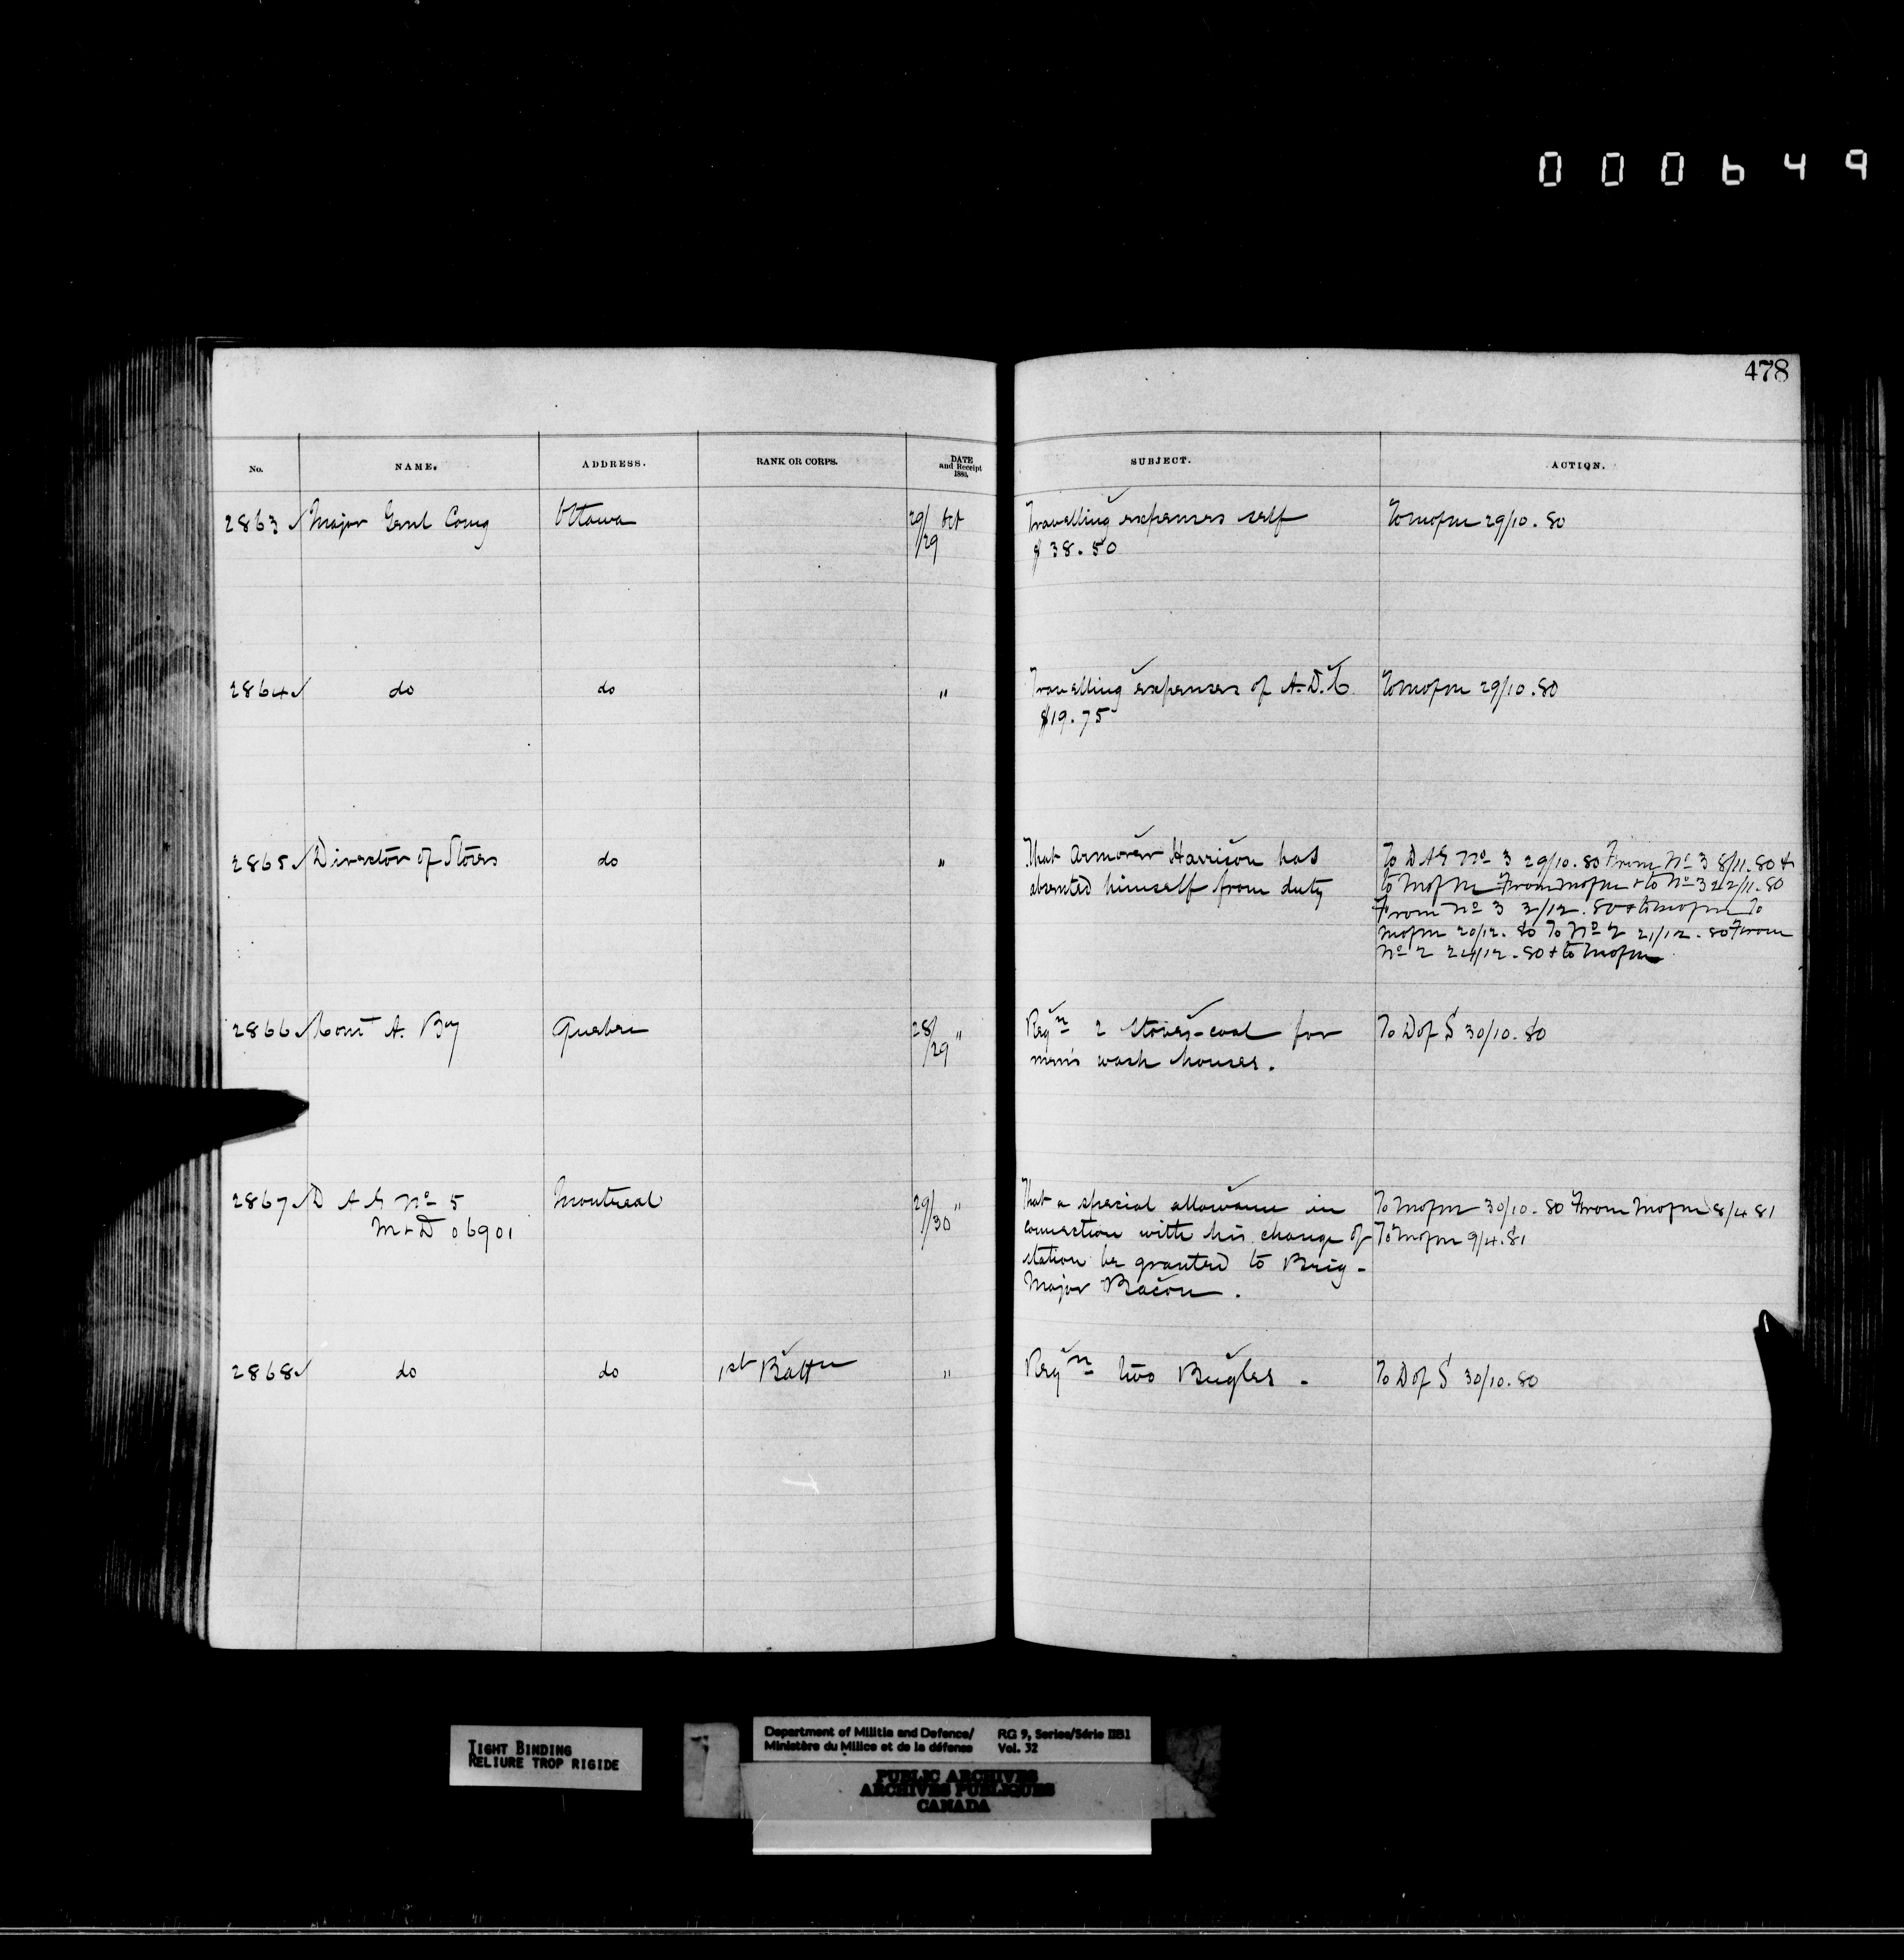 000649
478
No. NAME. ADDRESS. RANK OR CORPS. DATE and Receipt 1880. SUBJECT. ACTION.
2863 Major Genl Comg Ottawa 29/29 Oct Travelling expenses self To M of M 29/10.80
$38.50
2864 do do " Travelling expenses of A.D.C. To M of M 29/10.80
$19.75
2865 Director of Stores do " That Armorer Harrison has To D A G No 3 29/10.80 From No 3 8/11.80 &
absented himself from duty to M of M From M of M & to No 3 22/11.80
From No 3 3/12.80 & to M of M To
M of M 20/12.80 To No 2 21/12.80 From
No 2 24/12.80 & to M of M
2866 Comt A. Bay Quebec 28/29 " Reqn 2 Stoves-coal for To D of S 30/10.80
men's wash houses.
2867 D A G No 5 Montreal 29/30 " That a special allowance in To M of M 30/10.80 From M of M 8/4 81
M & D 06901 connection with his change of To M of M 9/4.81
station be granted to Brig-
Major Bacon.
2868 do do 1st Battn " Reqn two Bugles - To D of S 30/10.80
TIGHT BINDING
RELIURE TROP RIGIDE
Department of Militia and Defence/ RG 9, Series/Série IIB1
Ministère du Milice et de la défense Vol. 32
PUBLIC ARCHIVES
ARCHIVES PUBLIQUES
CANADA